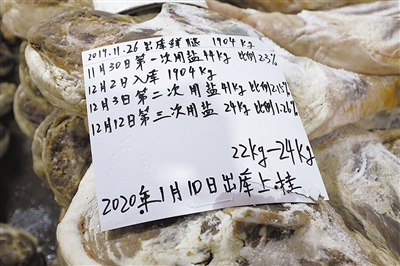 2019.11.26 出库鲜腿 1904 kg
11月30日第一次用盐44kg 比例2.3%
12月2日入库 1904 kg
12月3日第二次用盐41kg 比例2.15%
12月12日第三次用盐 24kg 比例1.26%
22kg—24kg
2020年1月10日出库上挂